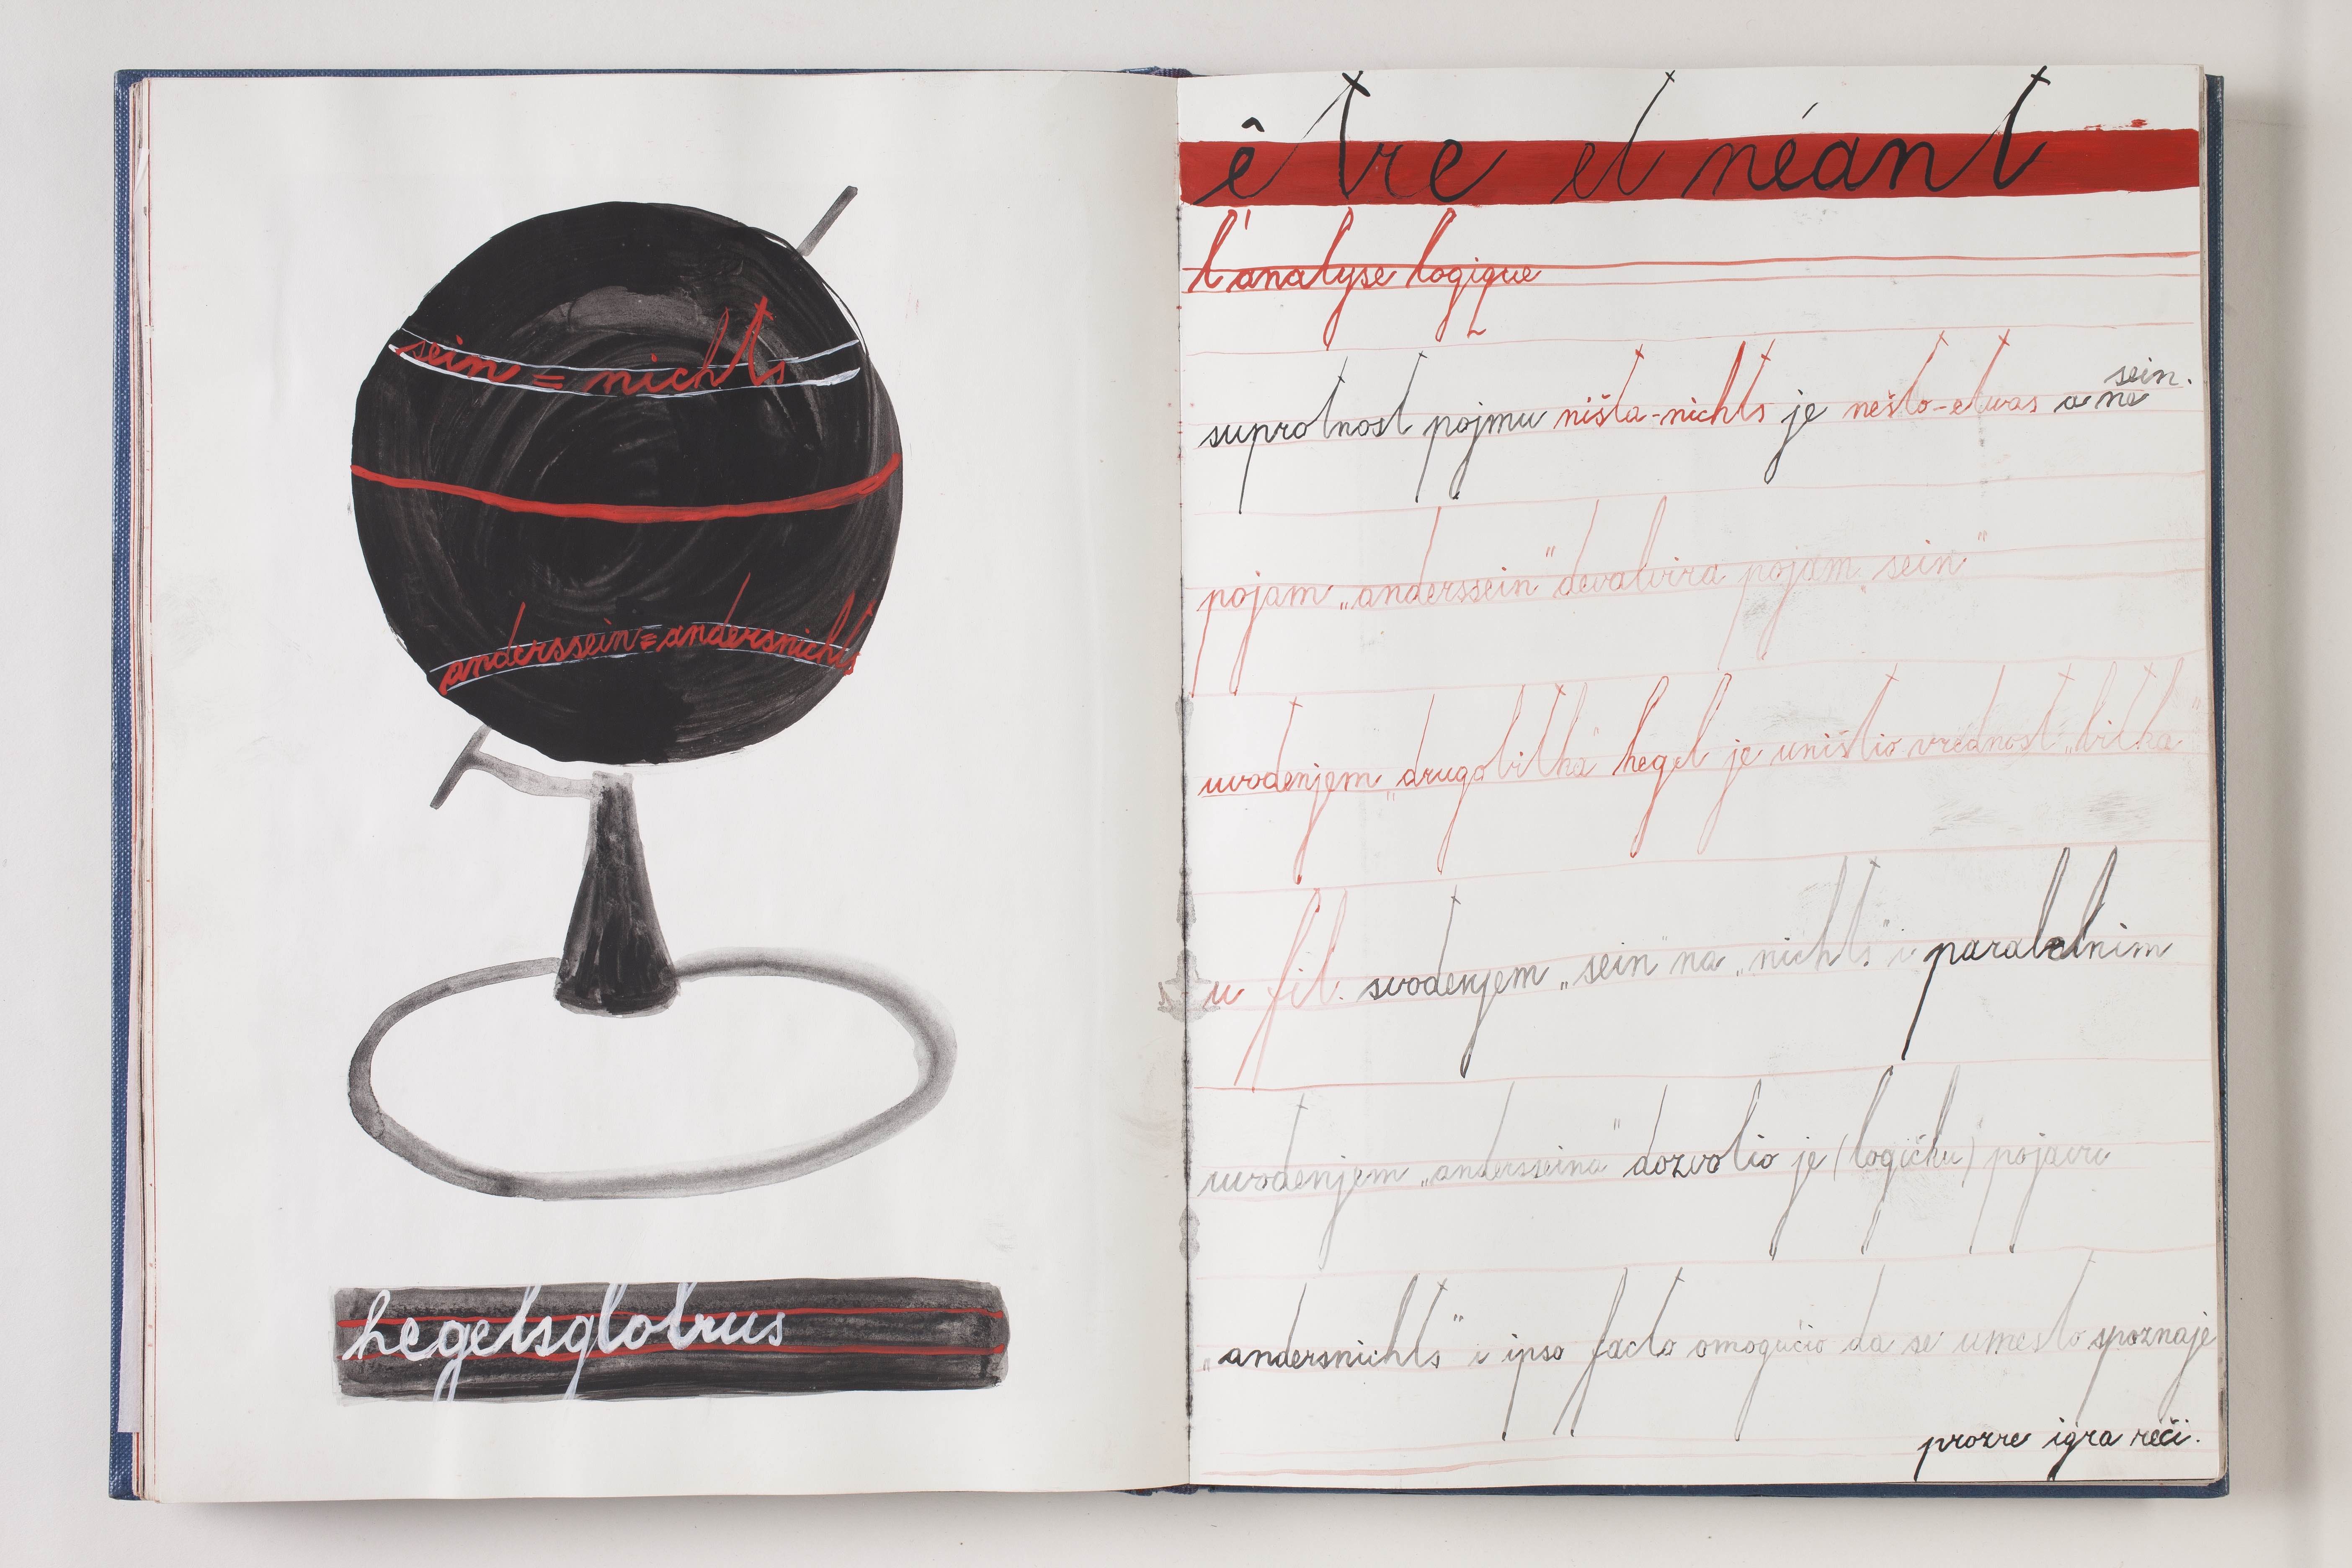 sein = nichts
anderssein = andersnichts
hegelsglobus
être et néant
l'analyse logique
suprotnost pojmu ništa-nichts je nešto-etwas a ne sein.
pojam „anderssein" devalvira pojam „sein"
uvođenjem „drugobitka" hegel je uništio vrednost „bitka"
u fil. svođenjem „sein" na „nichts" i paralelnim
uvođenjem „andersseina" dozvolio je (logičku) pojavu
„andersnichts" i ipso facto omogućio da se umesto spoznaje
prozre igra reči.